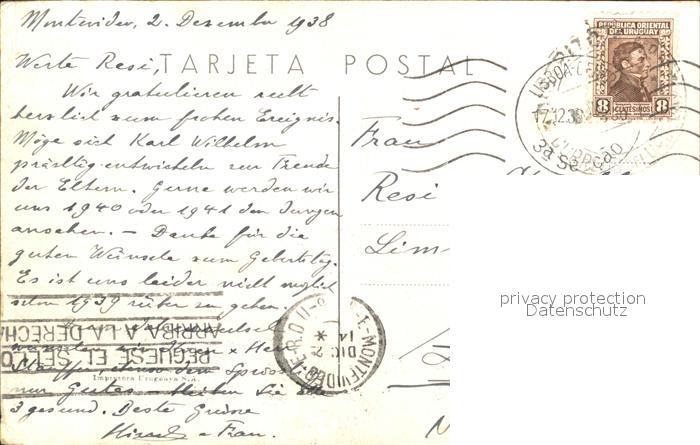 Montevideo, 2. Dezember 1938
TARJETA POSTAL
Werte Resi,
Wir gratulieren recht
herzlich zum frohen Ereignis.
Möge sich Karl Wilhelm
prächtig entwickeln zur Freude
der Eltern. Gerne werden wir
uns 1940 oder 1941 den Jungen
ansehen. – Danke für die
guten Wünsche zum Geburtstag.
Es ist uns leider nicht möglich
schon 1939 rüber zu gehen.
nur Gutes – bleiben Sie alle
3 gesund. Beste Grüsse
Frau.
Frau
Resi
Lim
REPUBLICA ORIENTAL
DEL URUGUAY
8 CENTESIMOS 8
LISBOA
17.12.38
3a Secção
MONTEVIDEO
DIC 2
14
PEGUESE EL SELLO
ARRIBA A LA DERECHA
Imprenta Uruguaya S.A.
privacy protection
Datenschutz